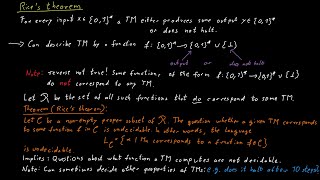 Rice's theorem
For every input x ∈ {0,1}* a TM either produces some output y ∈ {0,1}*
or does not halt.
→ Can describe TM by a function f: {0,1}* → {0,1}* ∪ {⊥}
output or does not halt
Note: reverse not true! Some functions, of the form f: {0,1}* → {0,1}* ∪ {⊥}
do not correspond to any TM.
Let R be the set of all such functions that do correspond to some TM.
Theorem (Rice's theorem):
Let C be a non-empty proper subset of R. The question whether a given TM corresponds
to some function f in C is undecidable. In other words, the language
L_C = {α | Mα corresponds to a function f ∈ C}
is undecidable.
Implies: Questions about what function a TM computes are not decidable.
Note: Can sometimes decide other properties of TMs: e.g. does it halt after 10 steps?